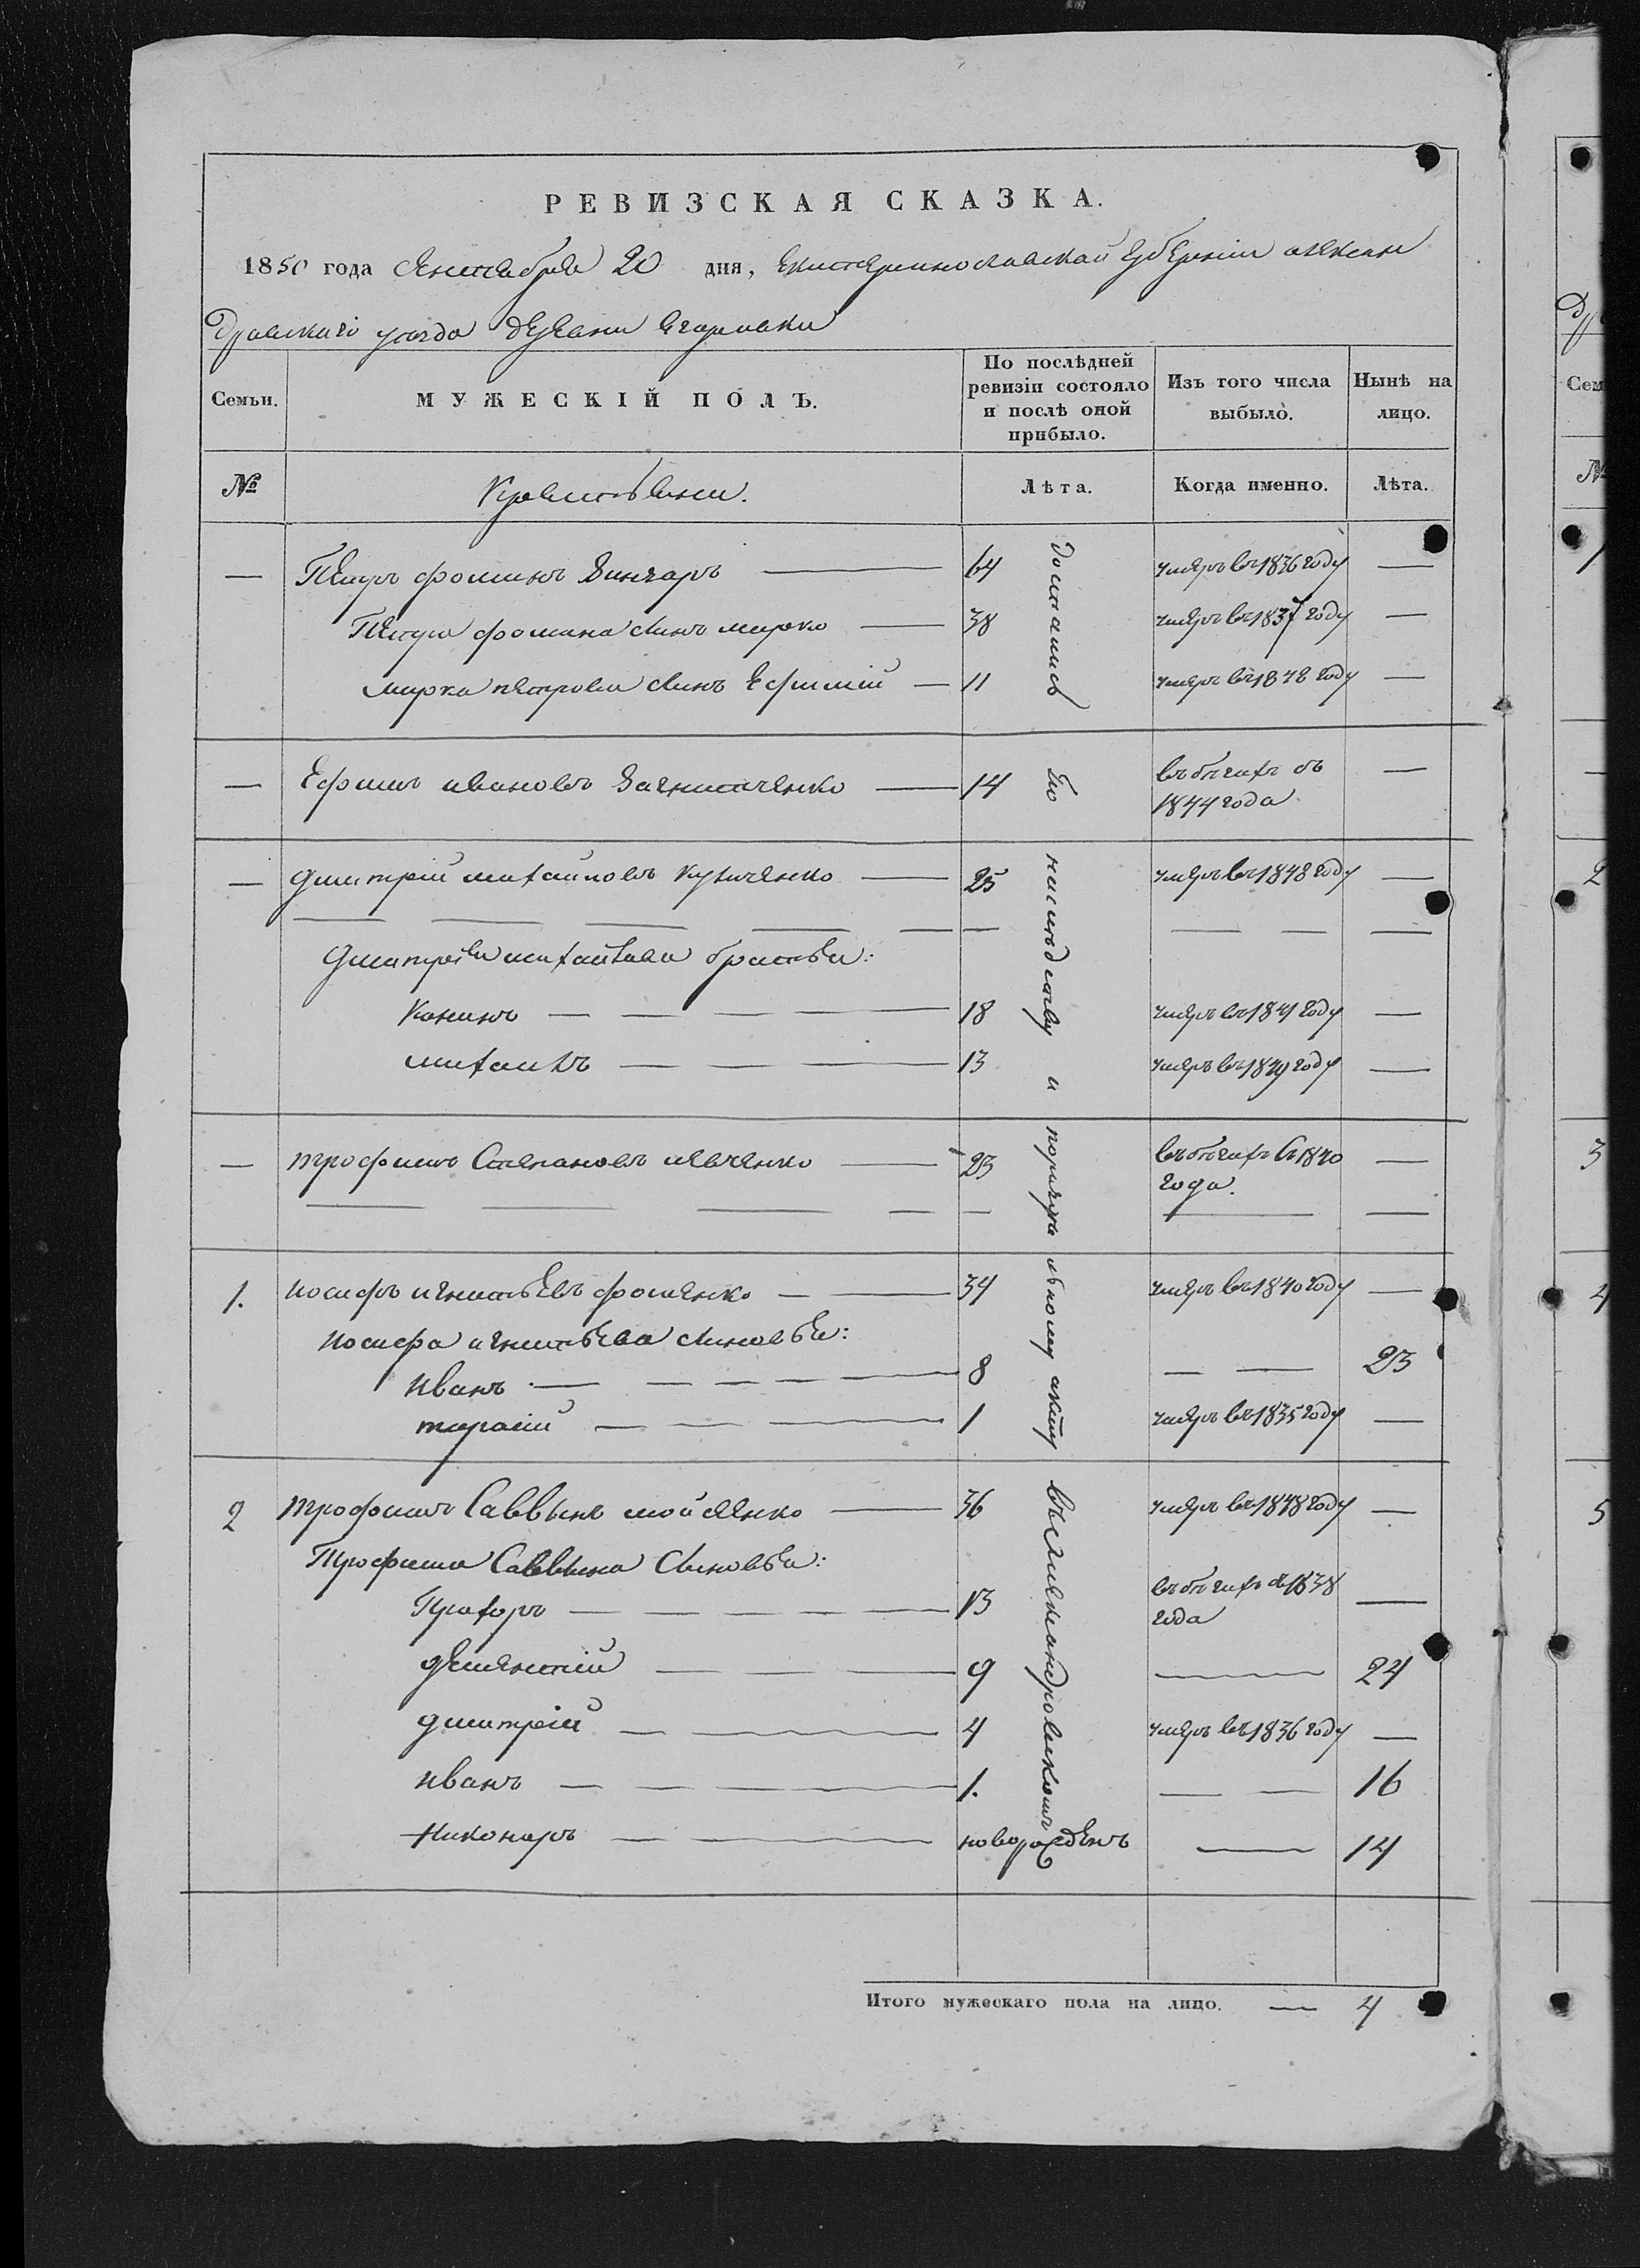 РЕВИЗСКАЯ СКАЗКА.
1850 года Сентября 20 дня, Екатеринославской губерніи Алексан
дровскаго уезда деревни Егоровки
Семьи. МУЖЕСКІЙ ПОЛЪ. По послѣдней ревизіи состояло и послѣ оной прибыло. Изъ того числа выбыло. Нынѣ на лицо.
№ Крестьяни. Лѣта. Когда именно. Лѣта.
— Петръ фоминъ — 64 умеръ въ 1836 году —
Петра фомина сынъ марко — 38 умеръ въ 1837 году —
марка петрова сынъ Ефимій — 11 умеръ въ 1848 году —
— Ефимъ ивановъ — 14 въ бегахъ съ —
1844 года
— дмитрій михайловъ — 25 умеръ въ 1848 году —
дмитрія михайлова братья:
Кононъ — 18 умеръ въ 1841 году —
михаилъ — 13 умеръ въ 1849 году —
— трофимъ Степановъ левченко — 23 въ бегахъ съ 1840 —
года.
1. иосифъ игнатьевъ фоменко — 34 умеръ въ 1840 году —
иосифа игнатьева сыновья:
иванъ — 8 — 23
тарасій — 1 умеръ въ 1835 году —
2 трофимъ Саввинъ мойсенко — 36 умеръ въ 1848 году —
Трофима Саввина Сыновья:
Прохоръ — 13 въ бегахъ съ 1838 —
года
дементій — 9 — 24
дмитрій — 4 умеръ въ 1836 году —
иванъ — 1. — 16
Никоноръ — новорожденъ — 14
достались
по
наследству и
актому
въ Александровскомъ
Итого мужескаго пола на лицо. — 4
Сем
№
1
2
3
4
5